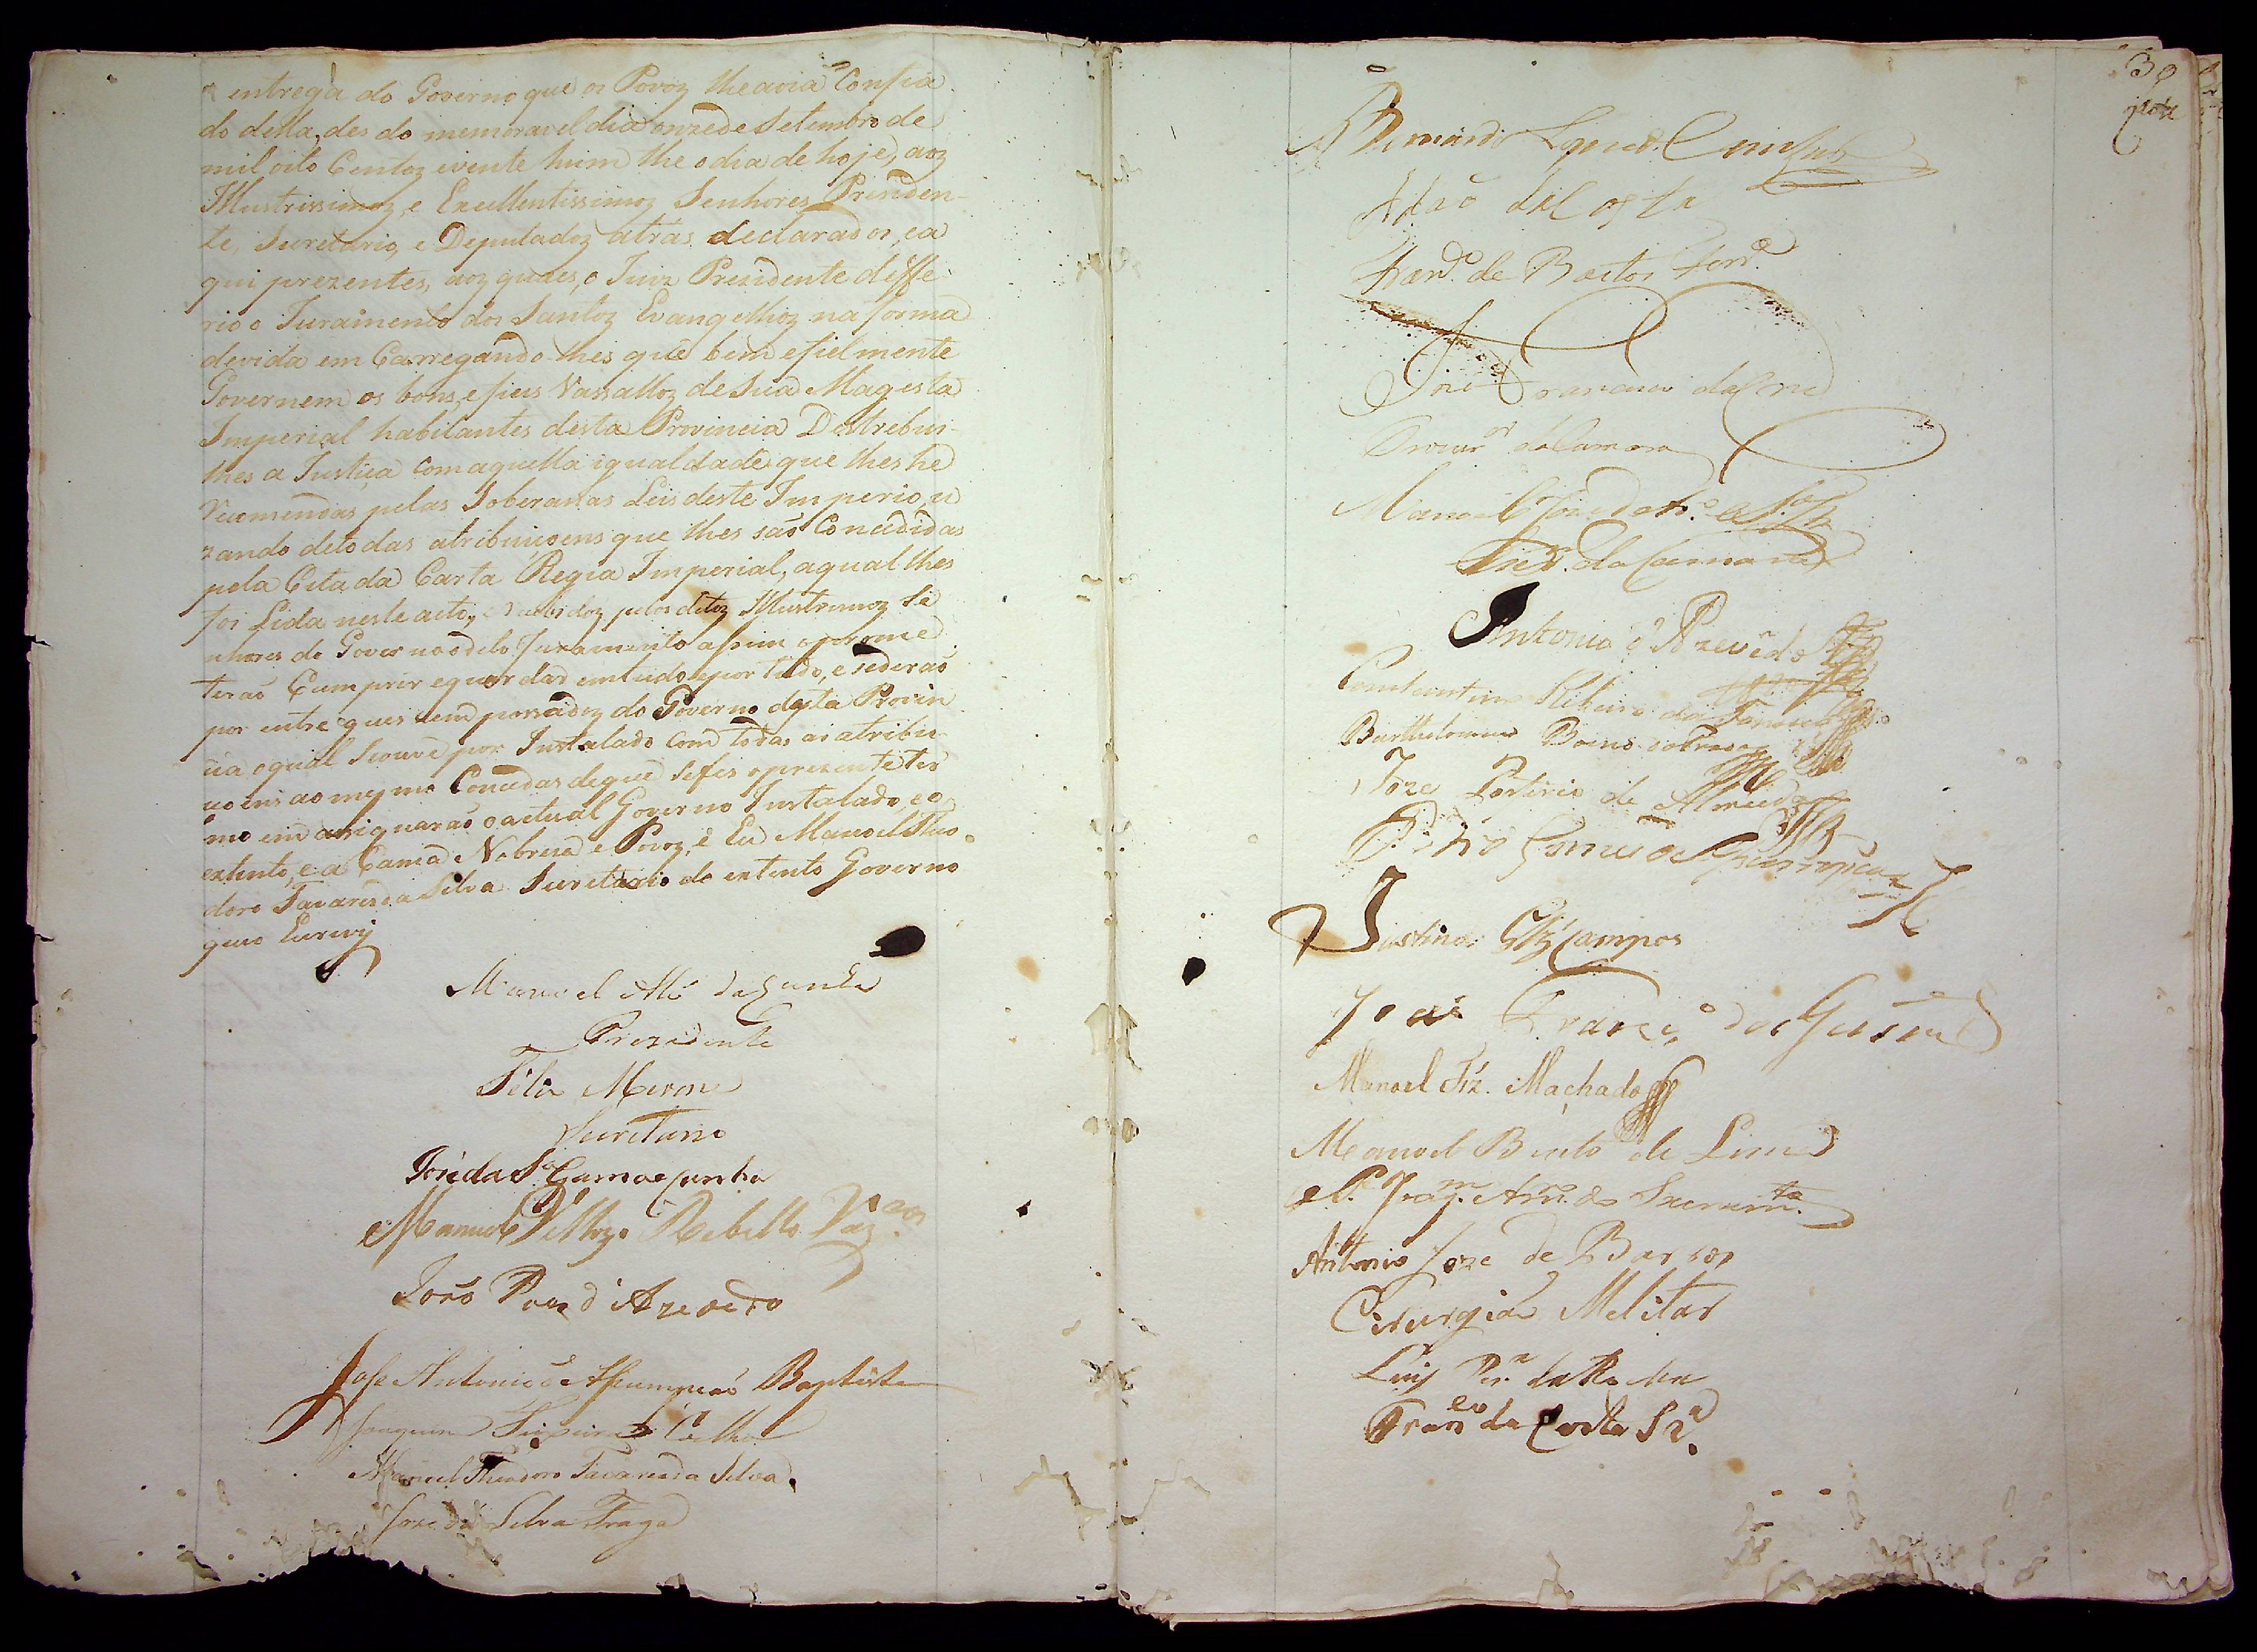 entrega do Governo que os Povoz lhe avia Confia
do desta, des do memoravel dia onze de Setembro de
mil oito Centoz e vente hum the o dia de hoje, aoz
Illustrissimoz, e Excellentissimoz Senhores Preziden-
te, Secretario, e Deputadoz atrás declarados, e a
qui prezentes, aoz quaes, o Juiz Prezidente deffe
rio o Juramento dos Santoz Evangelhoz na forma
devida em Carregando lhes que bem e fielmente
Governem os bons, e fieis Vassalloz de Sua Magesta
Imperial habitantes desta Provincia Destrebui-
lhes a Justiça com aquella igualdade que lhes he
recomendas pelas Soberanas Leis deste Imperio, u
zando de todas atribuiçoens que lhes são Concedidas
pela Citada Carta Regia Imperial, a qual lhes
foi Lida neste acto, e recebidoz pelos ditoz Illustrimoz Se
nhores do Governo o dito Juramento assim o prome
terão Cumprir e guardar em tudo e por tudo, e se derão
por entregues e empossadoz do Governo desta Provin
cia o qual se ouve por Instalado com todas as atribu
içoens ao mesmo Concedas de que se fes o prezente ter
mo em que asignarão o actual Governo Instalado, e o
extinto, e a Camâ Nobreza e Povoz, e Eu Manoel Theo
doro Tavares da Silva Secretario do extinto Governo
que o Escrevy
Manoel Alz' da Cunha
Prezidente
Felis Merme
Secretario
José da Sª Gama e Cunha
Manuel Velloz Rebello Vaz.cos
João Paes d'Azevedo
José Antonio d'Assumpção Baptista
Joaquim Teixeira Coelho
Manoel Theodoro Tavares da Silva
Joze da Silva Fraga
39
Bernardo
da Costa
Fernd.º de Bastos Ferr.ª
José Francisco da Cruz
Procur.or da Camara
Manoel José
da Camara
Antonio d'Azevêdo
Constantino Ribeiro da Fonseca
Bartholomeu Bueno do Prado
Joze Porfirio de Almeida
Pedro Gomes
Justino Glz' Campos
João Franc.º de
Manoel Frz. Machado
Manoel Bento de Lima
Antonio Joze de Barros
Cirurgião Melitar
Luis Per.ª da Rocha
Fran.co da Costa Sª.